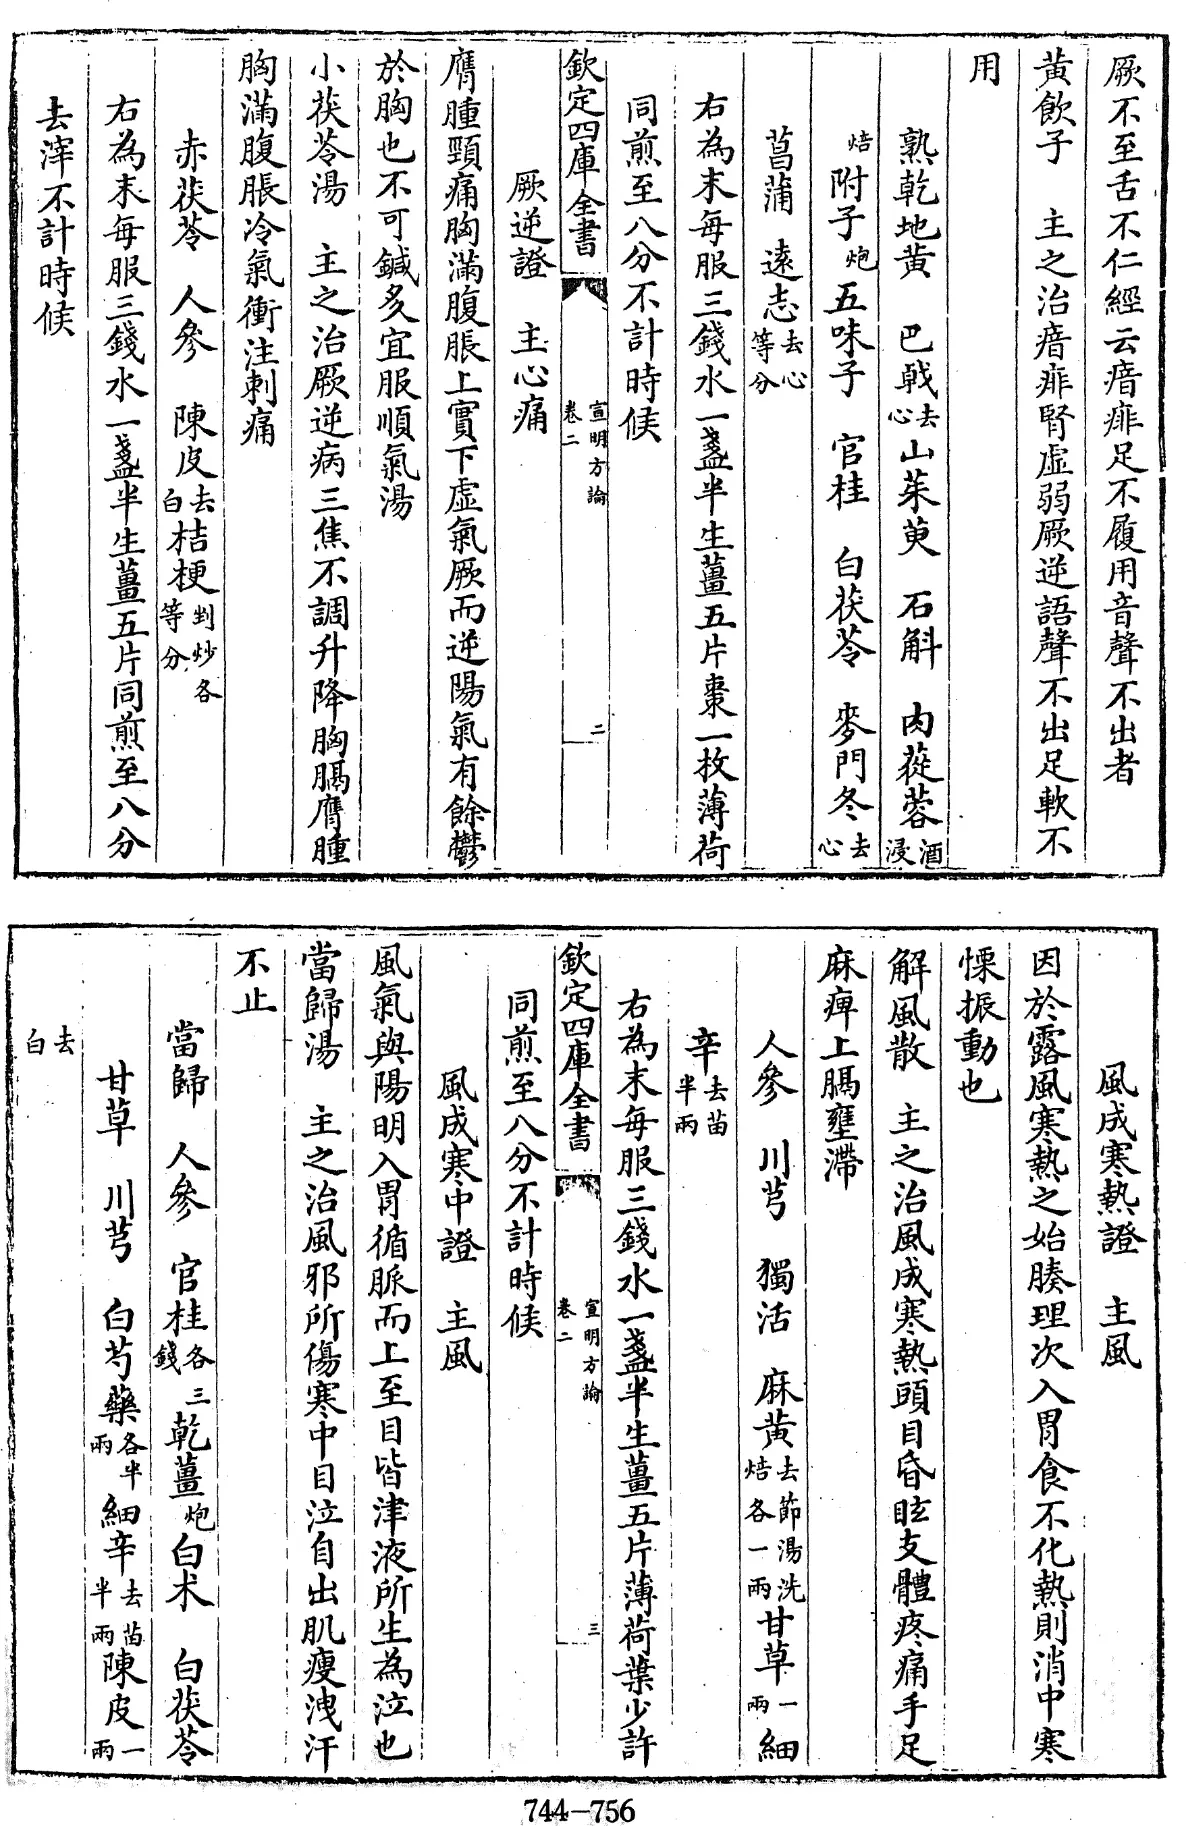 厥不至舌不仁經云瘖痱足不履用音聲不出者
黃飲子　主之治瘖痱腎虛弱厥逆語聲不出足軟不
用
熟乾地黃　巴戟去心山茱萸　石斛　肉蓯蓉酒浸
焙附子炮五味子　官桂　白茯苓　麥門冬去心
菖蒲　遠志去心等分
右為末每服三錢水一盞半生薑五片棗一枚薄荷
同煎至八分不計時候
欽定四庫全書　宣明方論卷二　二
厥逆證　主心痛
膺腫頸痛胸滿腹脹上實下虛氣厥而逆陽氣有餘鬱
於胸也不可鍼灸宜服順氣湯
小茯苓湯　主之治厥逆病三焦不調升降胸膈膺腫
胸滿腹脹冷氣衝注刺痛
赤茯苓　人參　陳皮去白桔梗剉炒各等分
右為末每服三錢水一盞半生薑五片同煎至八分
去滓不計時候
風成寒熱證　主風
因於露風寒熱之始腠理次入胃食不化熱則消中寒
慄振動也
解風散　主之治風成寒熱頭目昏眩支體疼痛手足
麻痺上膈壅滯
人參　川芎　獨活　麻黃去節湯洗焙各一兩甘草一兩細
辛去苗半兩
右為末每服三錢水一盞半生薑五片薄荷葉少許
欽定四庫全書　宣明方論卷二　三
同煎至八分不計時候
風成寒中證　主風
風氣與陽明入胃循脈而上至目眥津液所生為泣也
當歸湯　主之治風邪所傷寒中目泣自出肌瘦洩汗
不止
當歸　人參　官桂各三錢乾薑炮白朮　白茯苓
甘草　川芎　白芍藥各半兩細辛去苗半兩陳皮一兩
去白
744—756